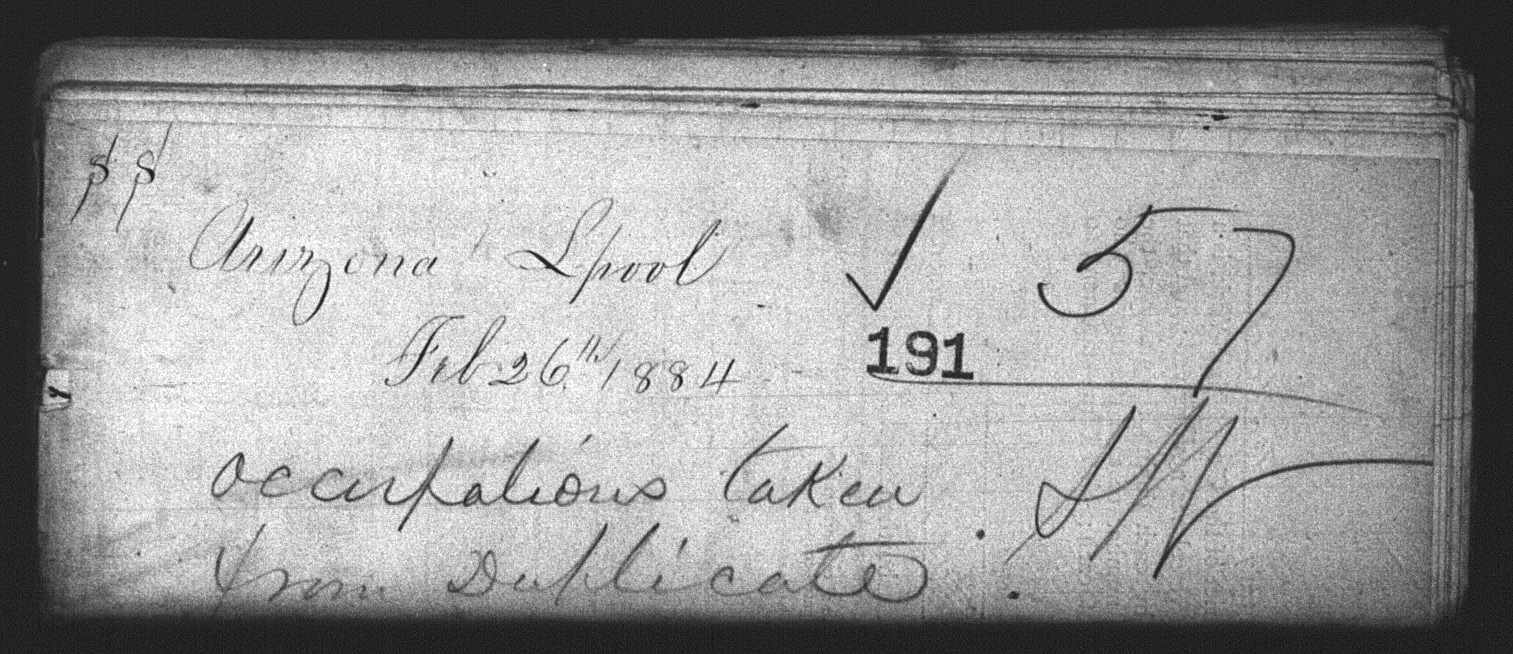 SS
Arizona Lpool
Feb 26th/1884
✓ 57
191
occupations taken
from Duplicate.